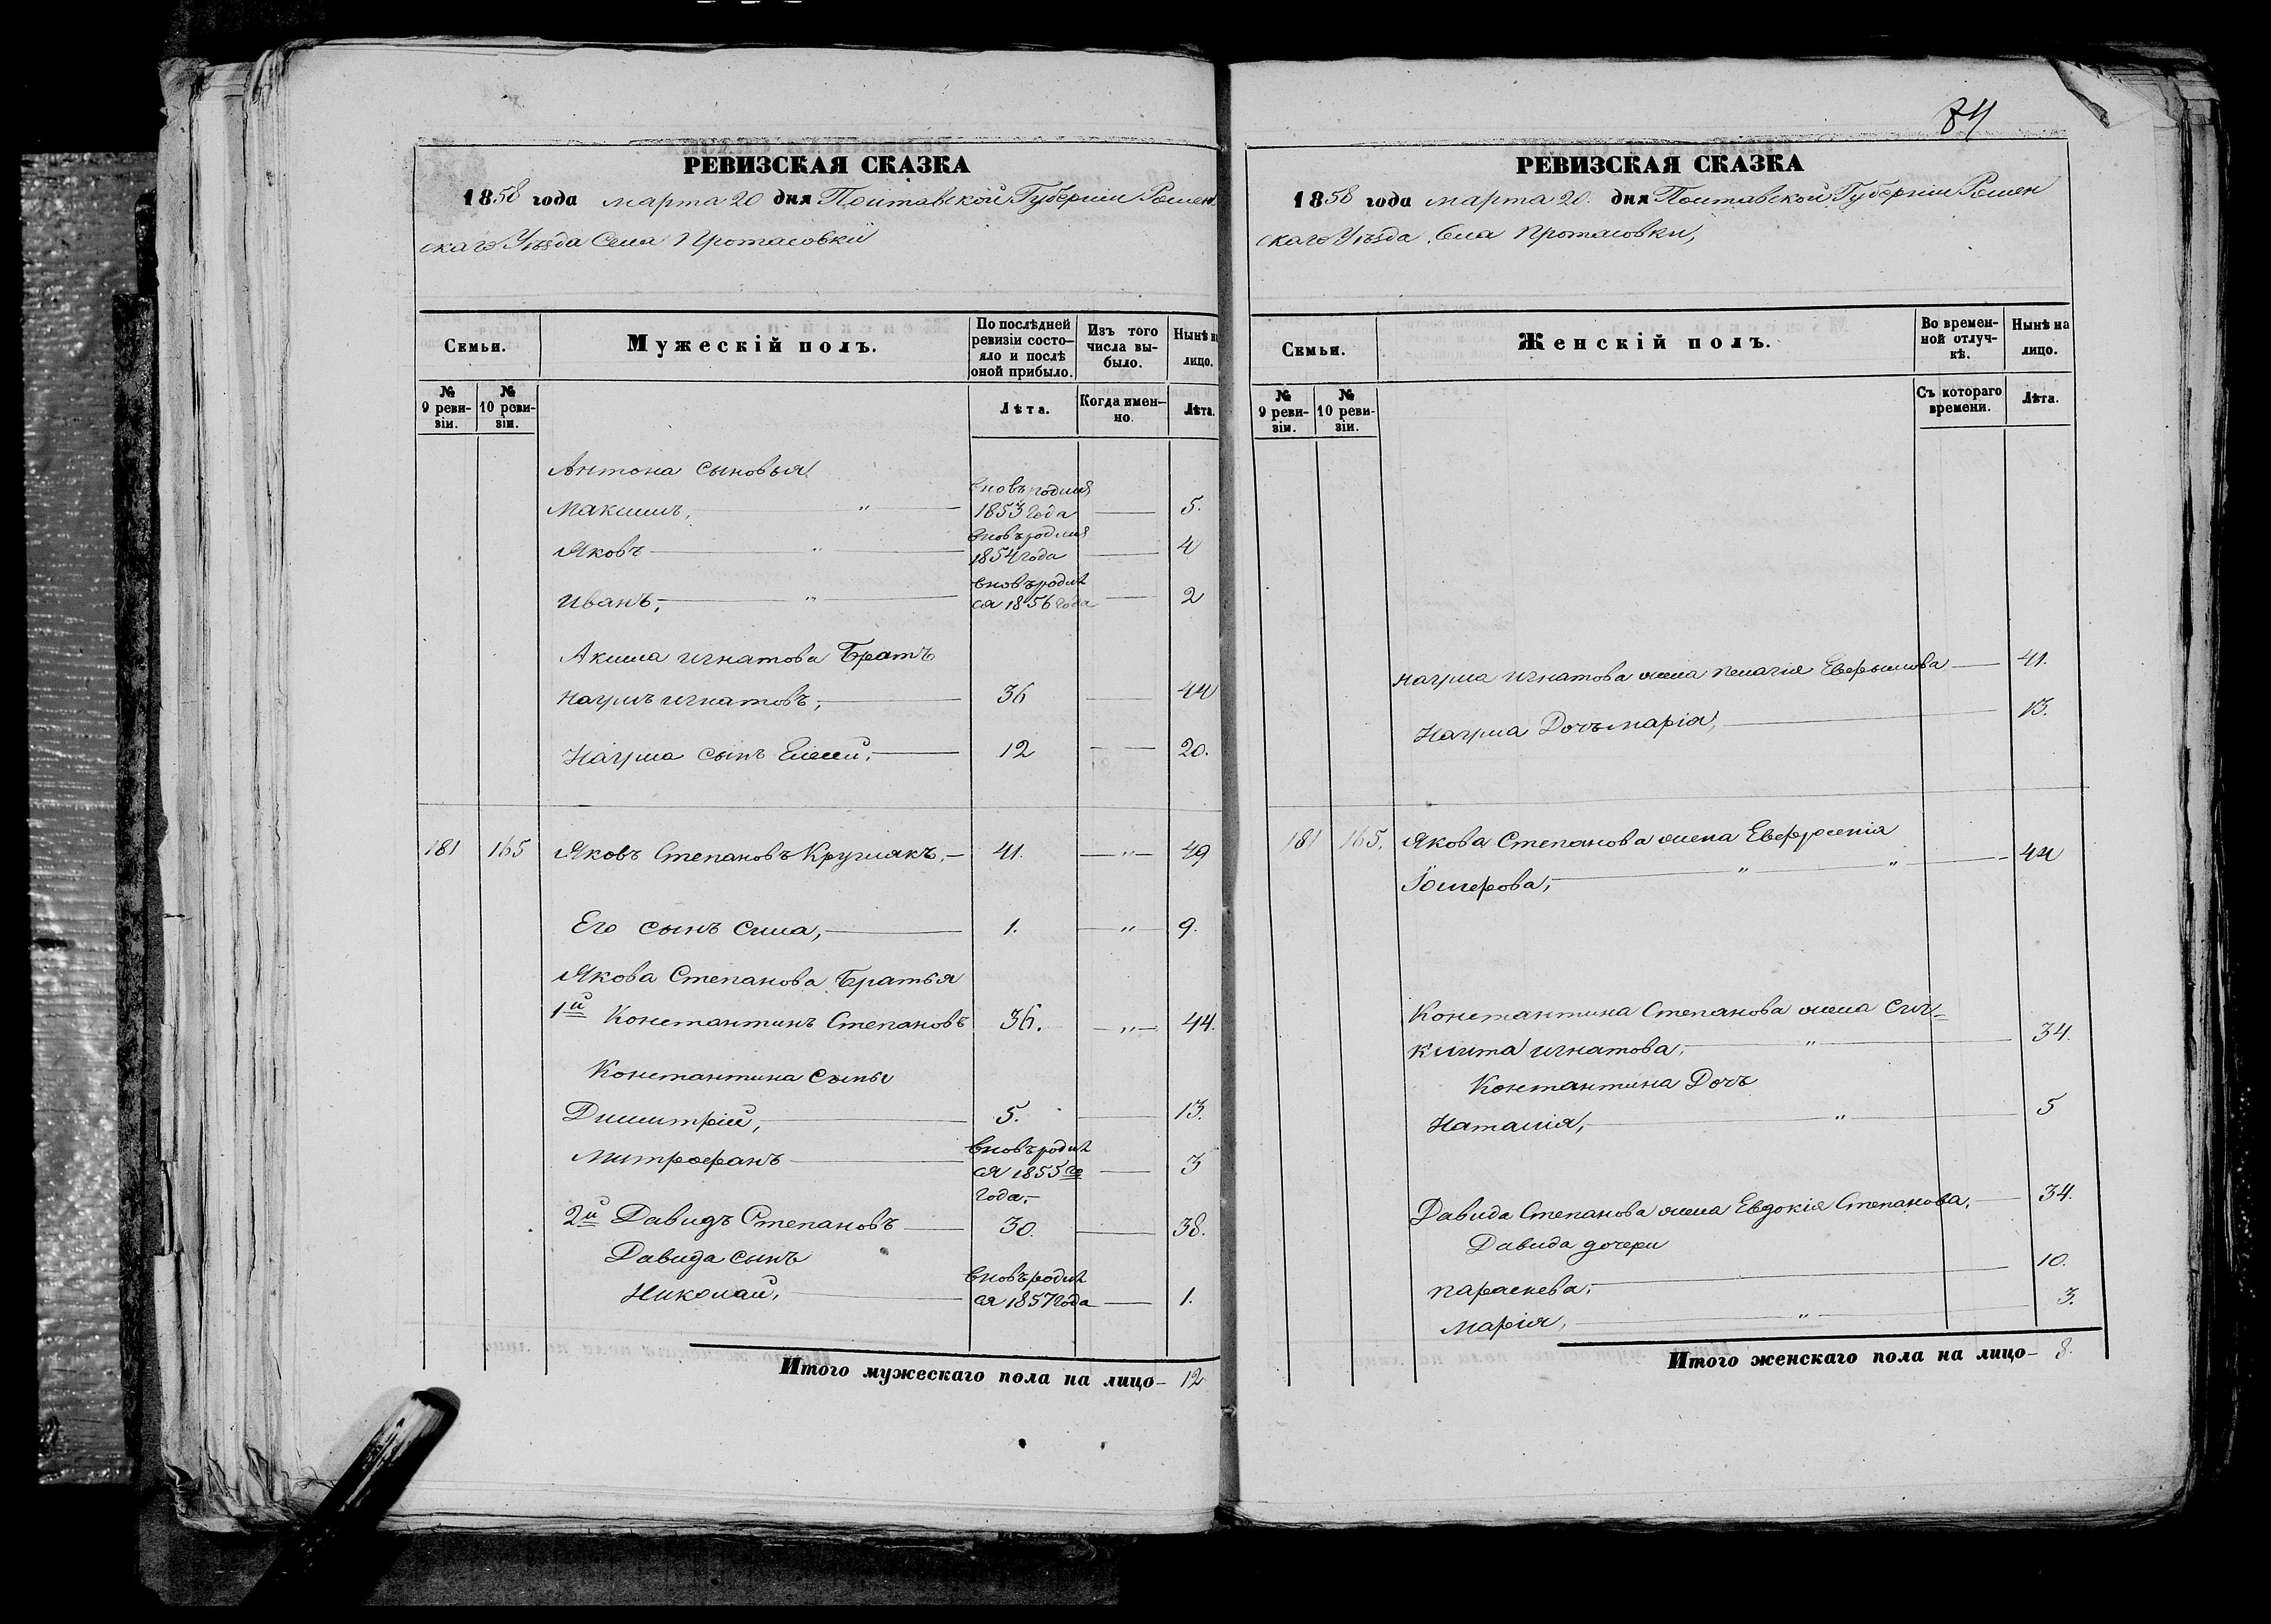 РЕВИЗСКАЯ СКАЗКА
1858 года марта 20 дня Полтавской Губернии Ромен
скаго Уѣзда Села Протасовки
Семьи.
Мужескій полъ.
По послѣдней ревизіи состо-яло и послѣ оной прибыло.
Изъ того числа вы-было.
Нынѣ на лицо.
№ 9 реви-зіи.
№ 10 реви-зіи.
Лѣта.
Когда имен-но.
Лѣта.
Антона сыновья
вновь родился
Максимъ, " 1853 года 5.
вновь родился
Яковъ " 1854 года 4
вновь родил
Иванъ, " ся 1856 года 2
Акима Игнатова Братъ
Наумъ Игнатовъ, 36 44
Наума сынъ Елисей, 12 20.
181 165 Яковъ Степановъ Кругликъ, 41. " 49
Его сынъ Сила, 1. " 9.
Якова Степанова Братья
1й Константинъ Степановъ 36. " 44.
Константина Сыны
Димитрій, 5. 13.
вновь родил
Митрофанъ ся 1855го 3
года,
2й Давидъ Степановъ 30. 38.
Давида сынъ
вновь родил
Николай, ся 1857 года 1.
Итого мужескаго пола на лицо- 12
84
РЕВИЗСКАЯ СКАЗКА
1858 года марта 20. дня Полтавской Губернии Ромен
скаго Уѣзда Села Протасовки,
Семьи.
Женскій полъ.
Во времен-ной отлуч-кѣ.
Нынѣ на лицо.
№ 9 реви-зіи.
№ 10 реви-зіи.
Съ котораго времени.
Лѣта.
Наума Игнатова жена Пелагія 41.
Наума Дочь Марія, 13.
181 165. Якова Степанова жена Евфросенія
" " 44
Константина Степанова жена Син-
клита Игнатова, " 34.
Константина Дочь
Наталія, " 5
Давида Степанова жена Евдокія Степанова, 34.
Давида дочери
Параскева, 10.
Марія, " 3.
Итого женскаго пола на лицо- 8.